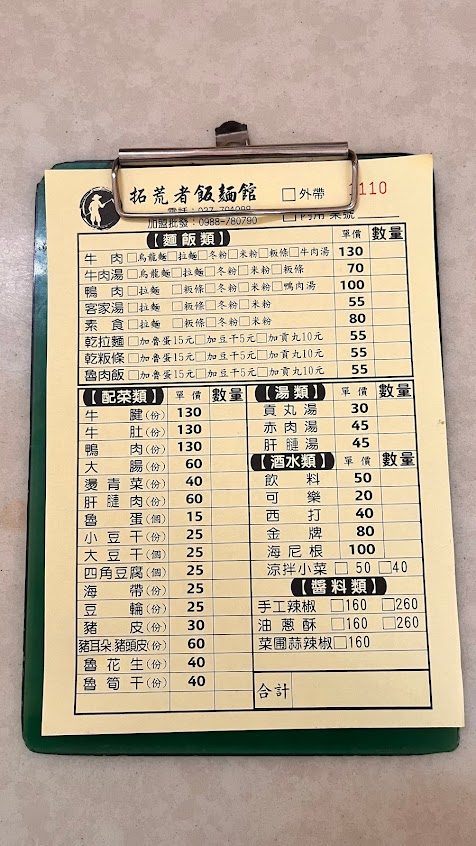 拓荒者飯麵館 □外帶 1110
加盟批發：0988-780790
【麵飯類】 單價 數量
牛肉 □烏龍麵□拉麵□冬粉□米粉□粄條□牛肉湯 130
牛肉湯 □烏龍麵□拉麵□冬粉□米粉□粄條 70
鴨肉 □拉麵 □粄條□冬粉□米粉□鴨肉湯 100
客家湯 □拉麵 □粄條□冬粉□米粉 55
素食 □拉麵 □粄條□冬粉□米粉 80
乾拉麵 □加魯蛋15元□加豆干5元□加貢丸10元 55
乾粄條 □加魯蛋15元□加豆干5元□加貢丸10元 55
魯肉飯 □加魯蛋15元□加豆干5元□加貢丸10元 55
【配菜類】 單價 數量
牛腱(份) 130
牛肚(份) 130
鴨肉(份) 130
大腸(份) 60
燙青菜(份) 40
肝膉肉(份) 60
魯蛋(個) 15
小豆干(份) 25
大豆干(個) 25
四角豆腐(個) 25
海帶(份) 25
豆輪(份) 25
豬皮(份) 30
豬耳朵豬頭皮(份) 60
魯花生(份) 40
魯筍干(份) 40
【湯類】 單價 數量
貢丸湯 30
赤肉湯 45
肝膉湯 45
【酒水類】 單價 數量
飲料 50
可樂 20
西打 40
金牌 80
海尼根 100
涼拌小菜 □ 50 □40
【醬料類】
手工辣椒 □160 □260
油蔥酥 □160 □260
菜圃蒜辣椒□160
合計